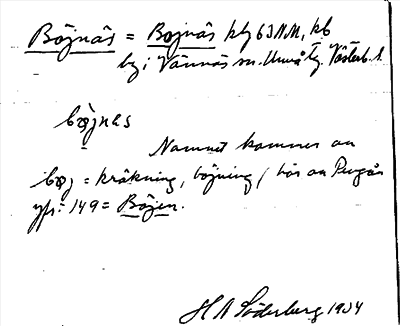 Böjnäs = Bojnäs kbg 63 NM, kb
by i Vännäs sn. Umeå tg. Västerb. l.
bøjnes
Namnet kommer av
bøj = krökning, böjning / här av Pengån
yfr: 149 = Böjen.
H N Söderberg 1934